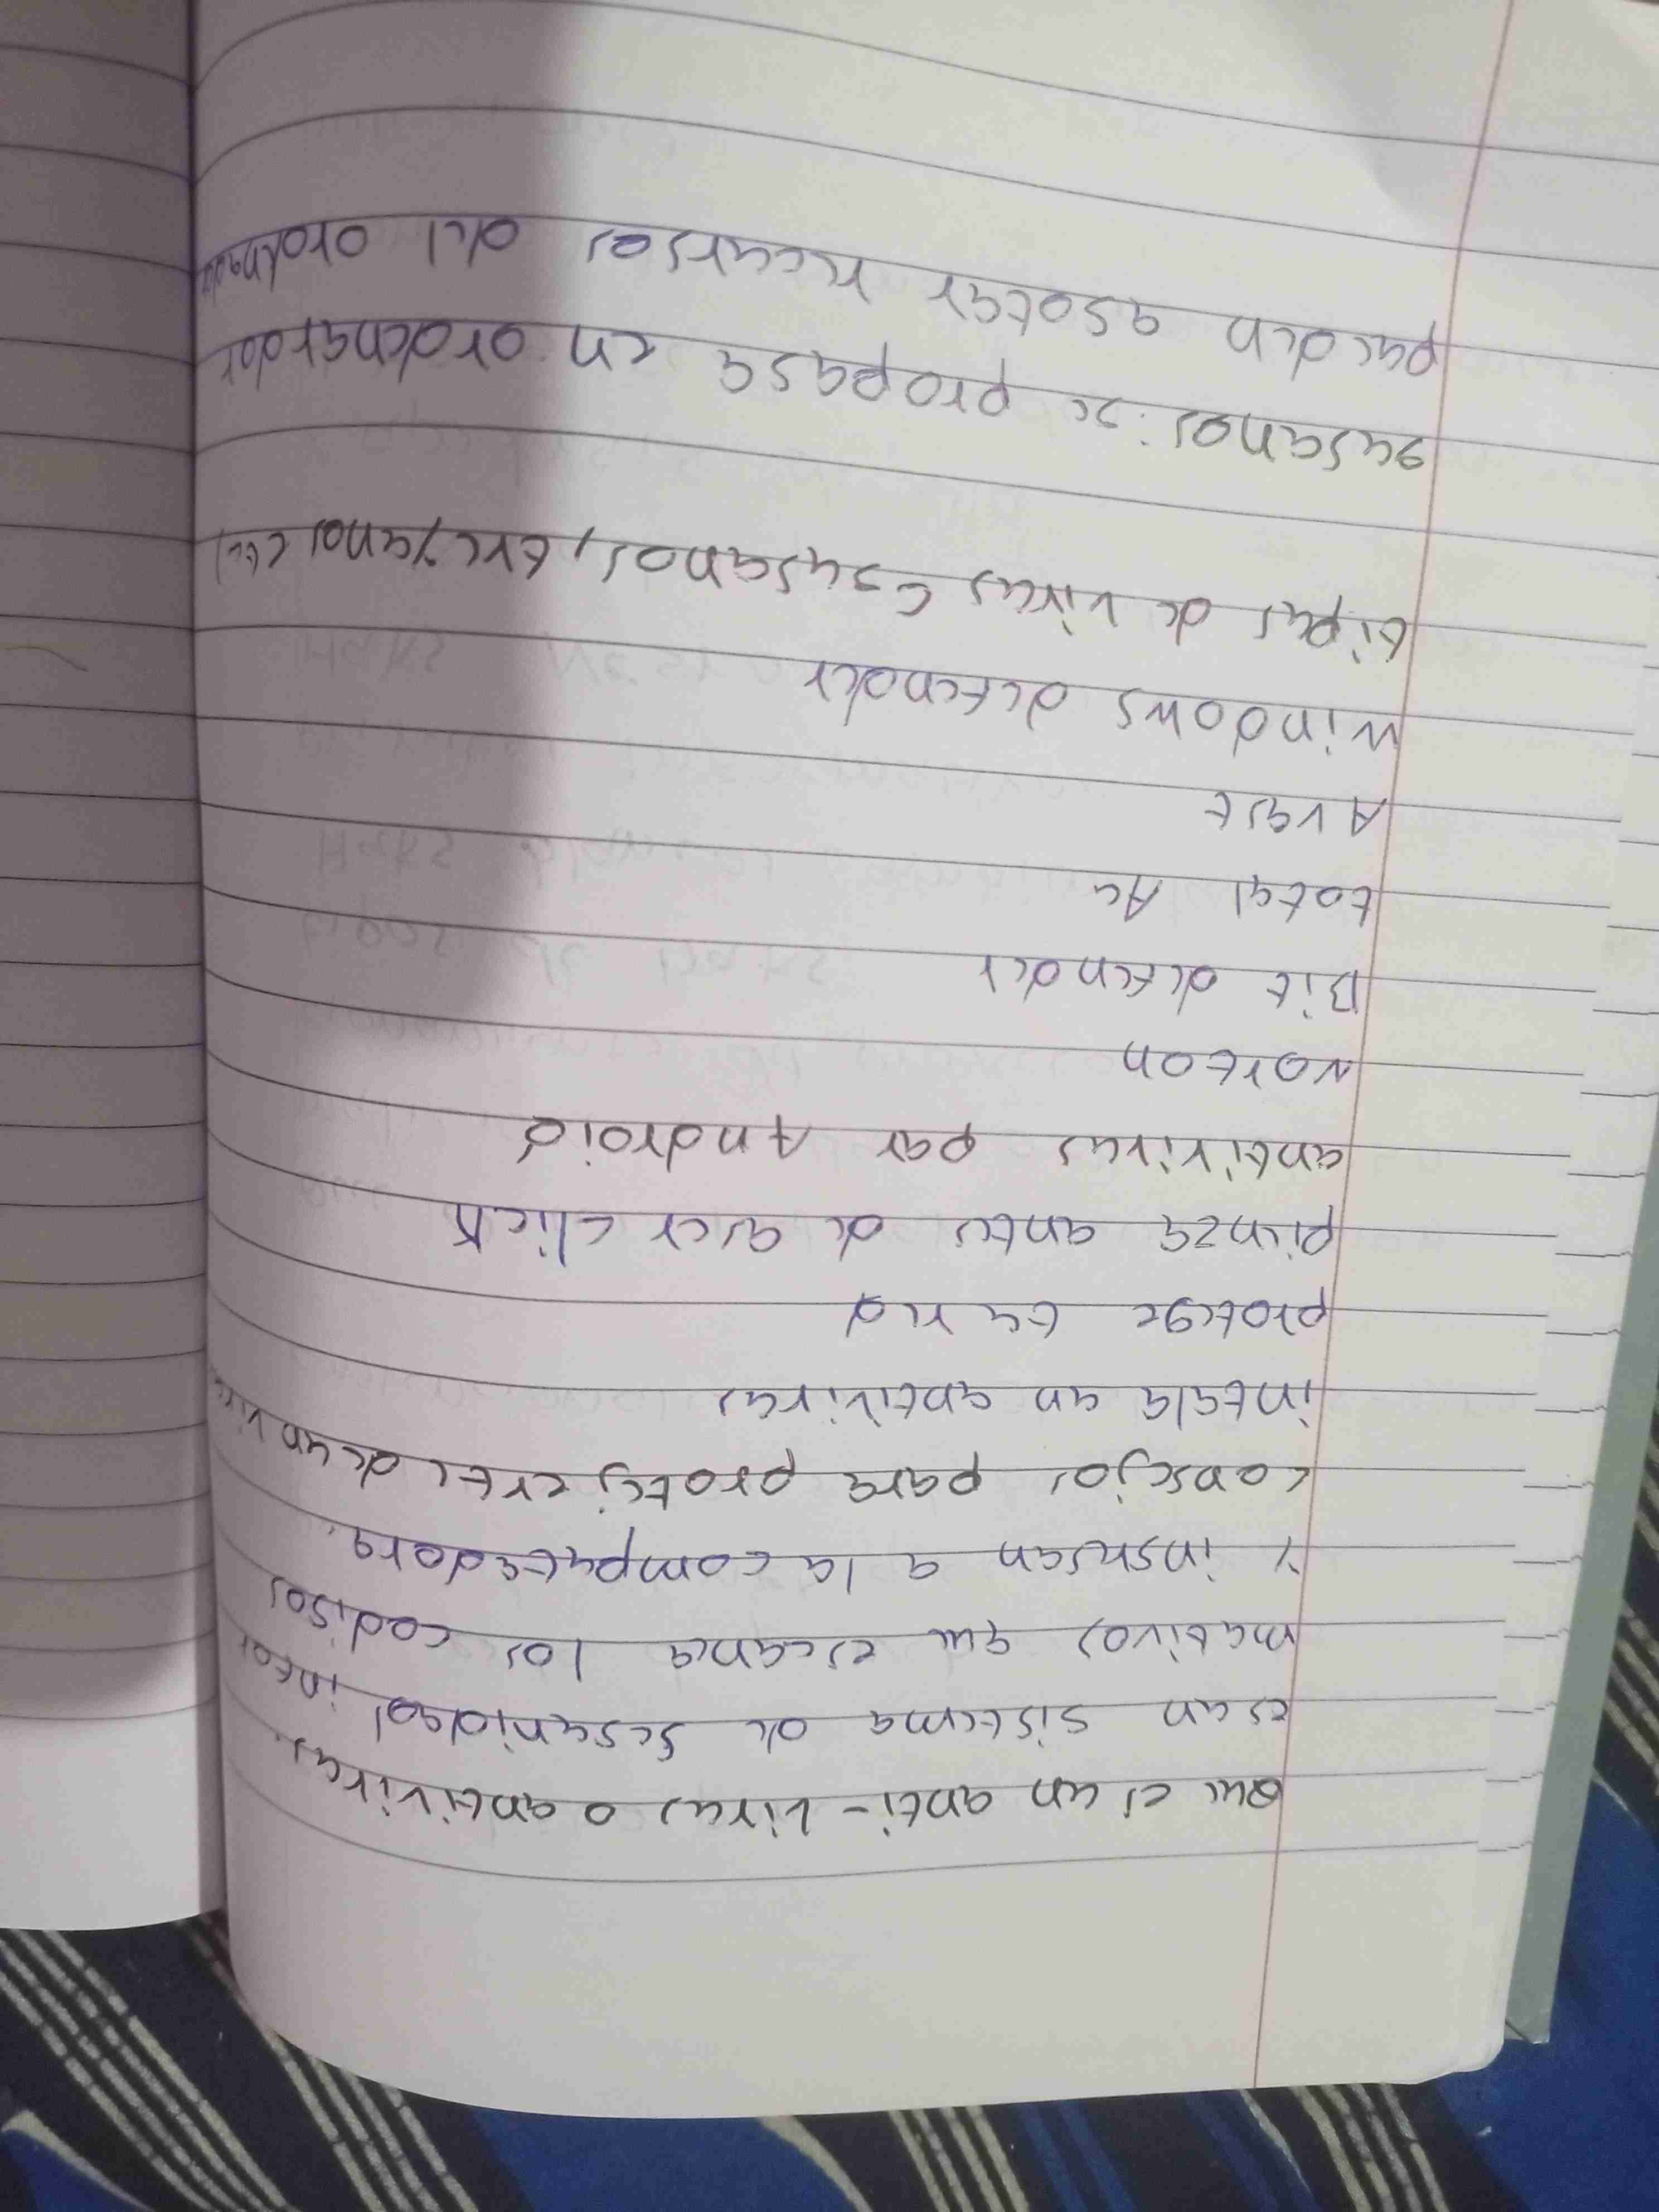 Que es un anti-virus o antivirus.
es un sistema de seguridad infor
mativos que escana los codisos
y insresan a la computadora.
consejos para protejerte de un virus
intala un antivirus
protege tu red
pienza antes de aser click
antivirus par Android
norton
Bit defender
total Au
Avast
windows defender
tipus de virus Gusanos, troyanos etc)
gusanos: se propasa en ordenardor
pueden asotar recursos del ordenador